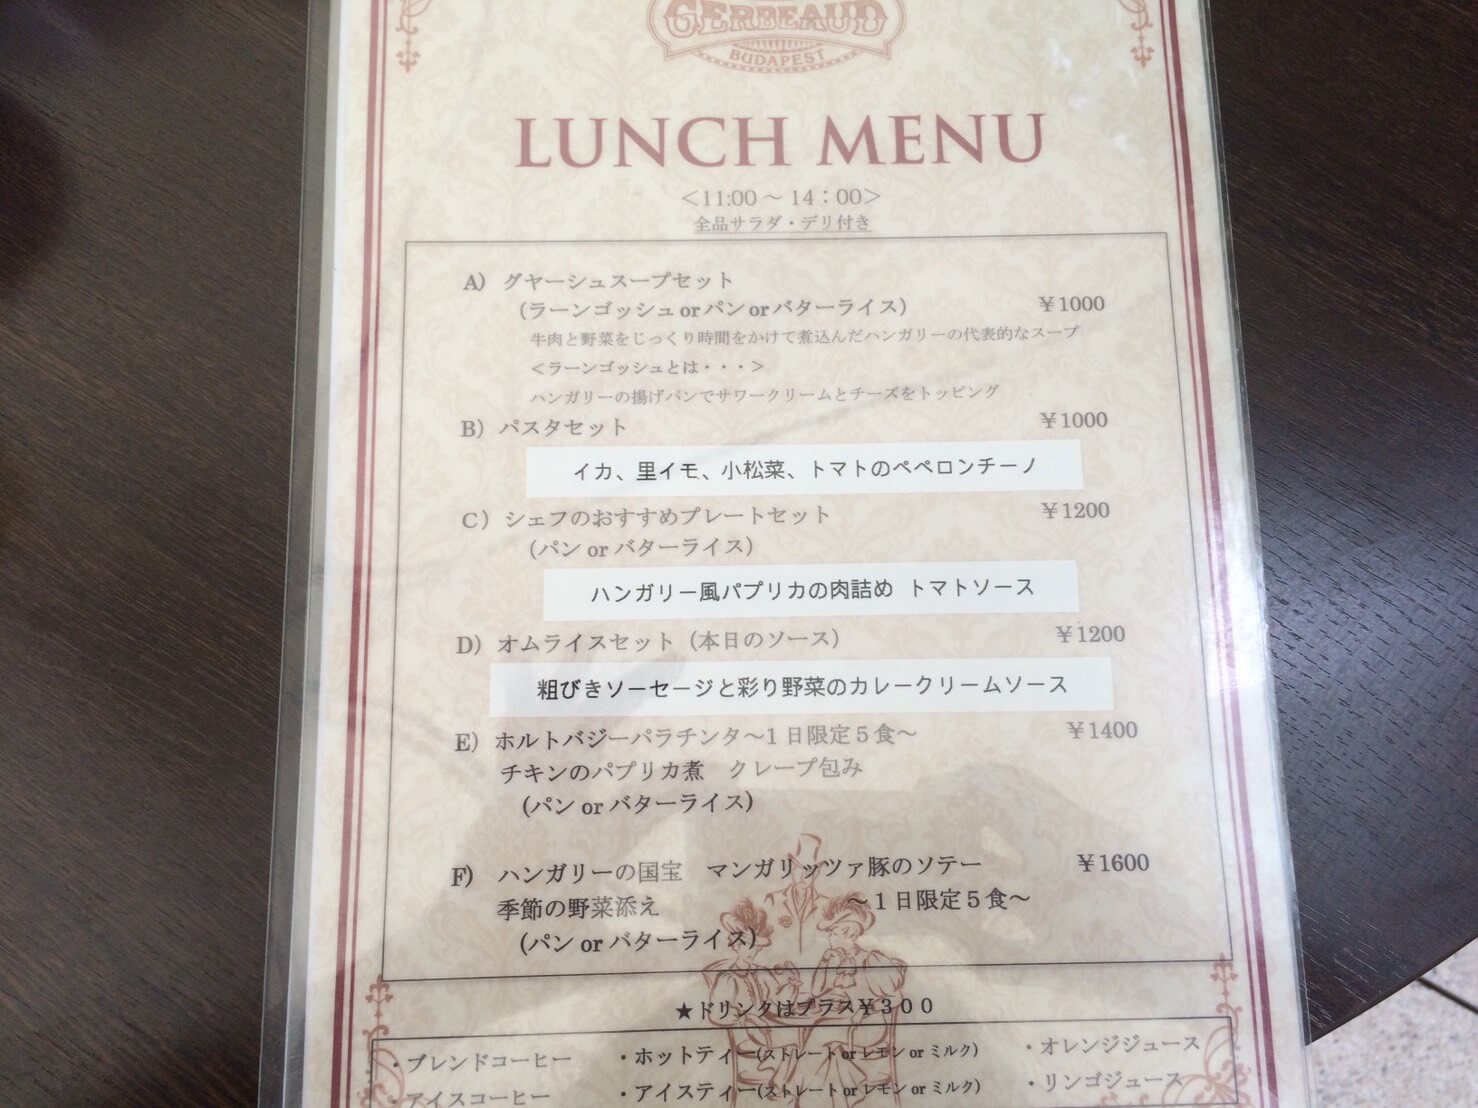 GERBEAUD
BUDAPEST
LUNCH MENU
＜11:00～14：00＞
全品サラダ・デリ付き
A）グヤーシュスープセット
（ラーンゴッシュ or パン or バターライス） ￥1000
牛肉と野菜をじっくり時間をかけて煮込んだハンガリーの代表的なスープ
＜ラーンゴッシュとは・・・＞
ハンガリーの揚げパンでサワークリームとチーズをトッピング
B）パスタセット ￥1000
イカ、里イモ、小松菜、トマトのペペロンチーノ
C）シェフのおすすめプレートセット ￥1200
（パン or バターライス）
ハンガリー風パプリカの肉詰め トマトソース
D）オムライスセット（本日のソース） ￥1200
粗びきソーセージと彩り野菜のカレークリームソース
E）ホルトバジーパラチンタ～1日限定5食～ ￥1400
チキンのパプリカ煮　クレープ包み
（パン or バターライス）
F）ハンガリーの国宝　マンガリッツァ豚のソテー ￥1600
季節の野菜添え ～1日限定5食～
（パン or バターライス）
★ドリンクはプラス￥300
・ブレンドコーヒー ・ホットティー(ストレート or レモン or ミルク) ・オレンジジュース
・アイスコーヒー ・アイスティー(ストレート or レモン or ミルク) ・リンゴジュース